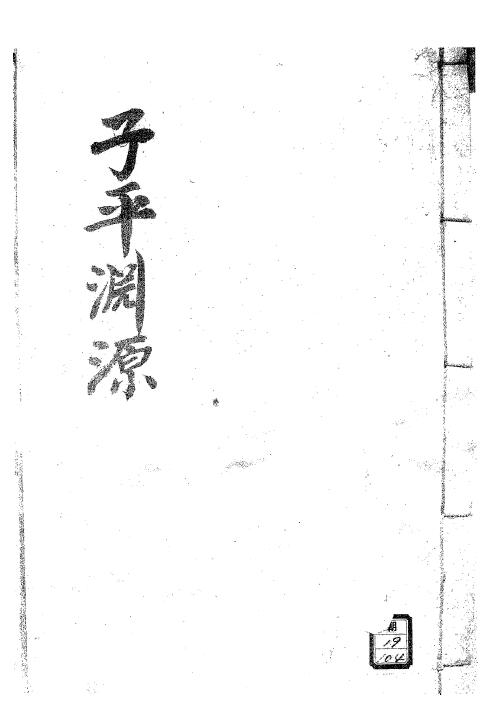 子平淵源
朝
19
104